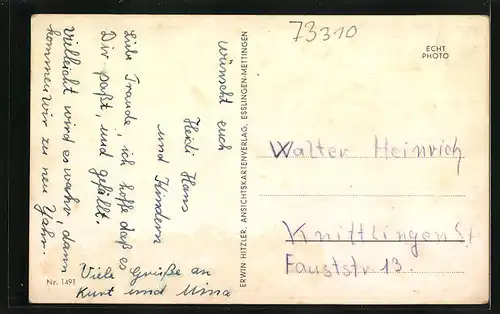 73310
ECHT
PHOTO
wünscht euch
Heidi Hans
und Kindern
Liebe Traude, ich hoffe daß es
Dir paßt, und gefällt.
Vielleicht wird es wahr, dann
kommen wir zu neu Yahr.
Viele Grüße an
Kurt und Mina
Nr. 1491
ERWIN HITZLER, ANSICHTSKARTENVERLAG, ESSLINGEN-METTINGEN
Walter Heinrich
Knittlingen
Fauststr 13.